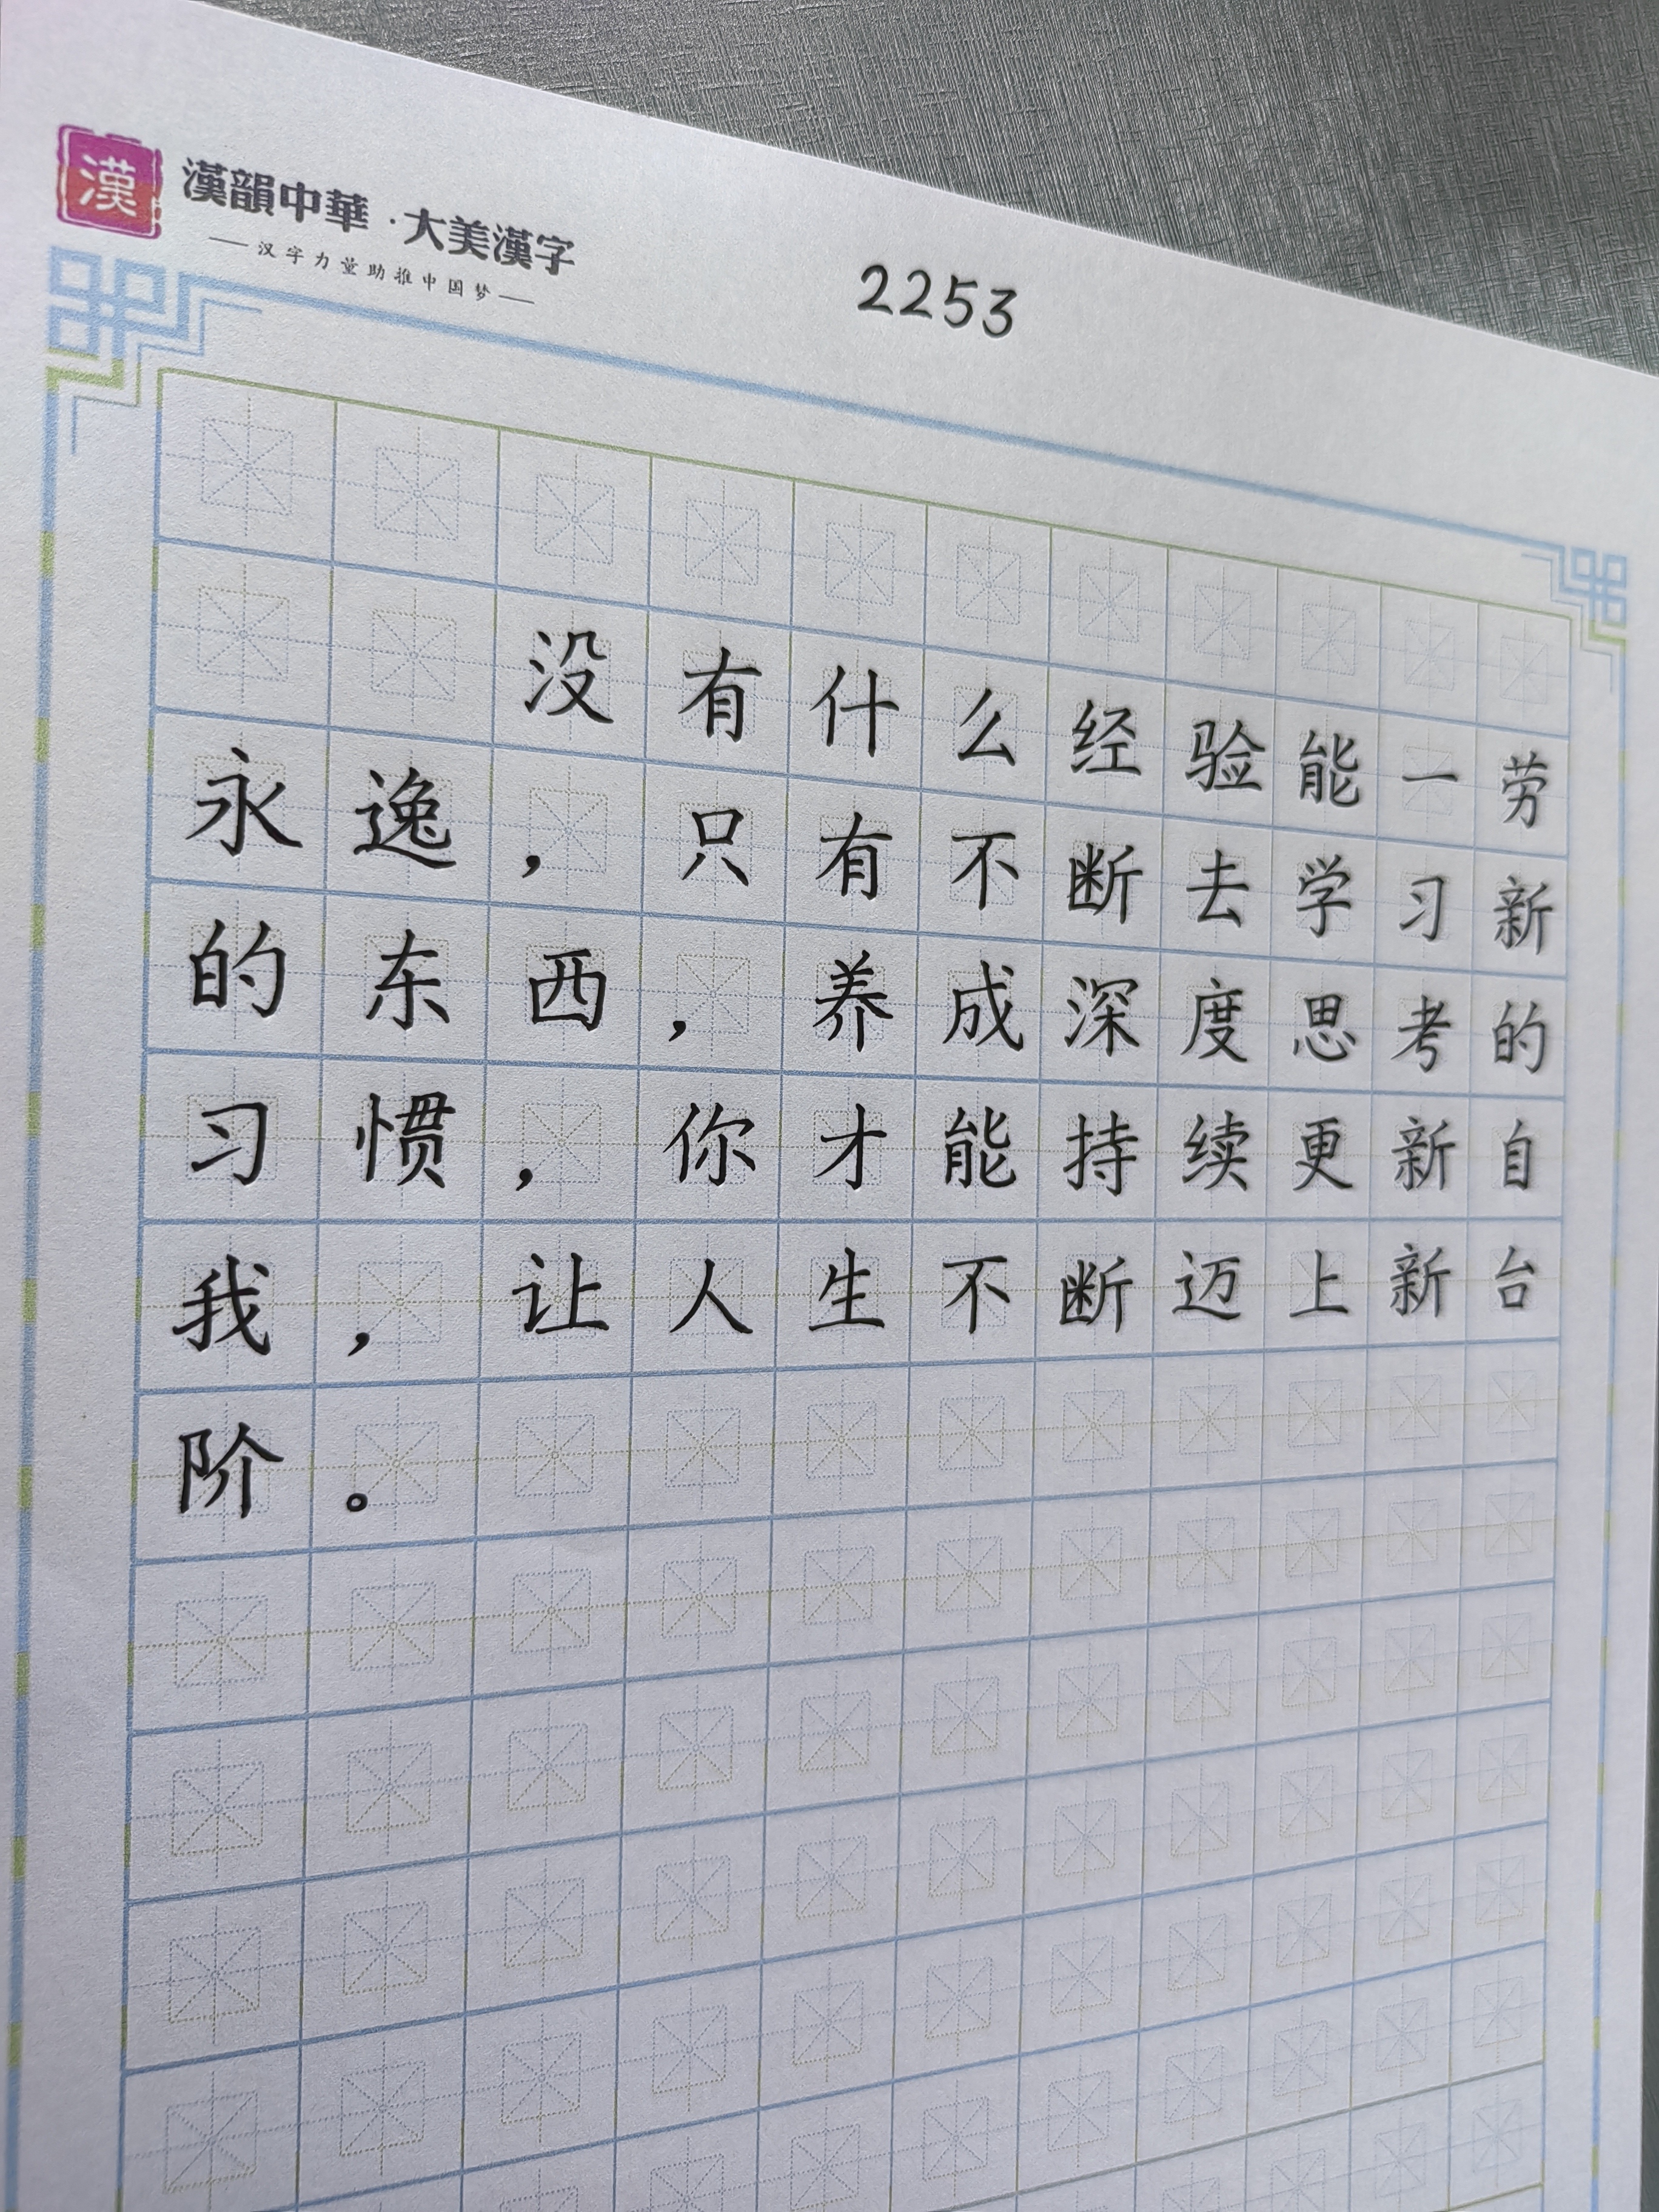 漢
漢韻中華·大美漢字
——汉字力量助推中国梦——
2253
没有什么经验能一劳
永逸，只有不断去学习新
的东西，养成深度思考的
习惯，你才能持续更新自
我，让人生不断迈上新台
阶。